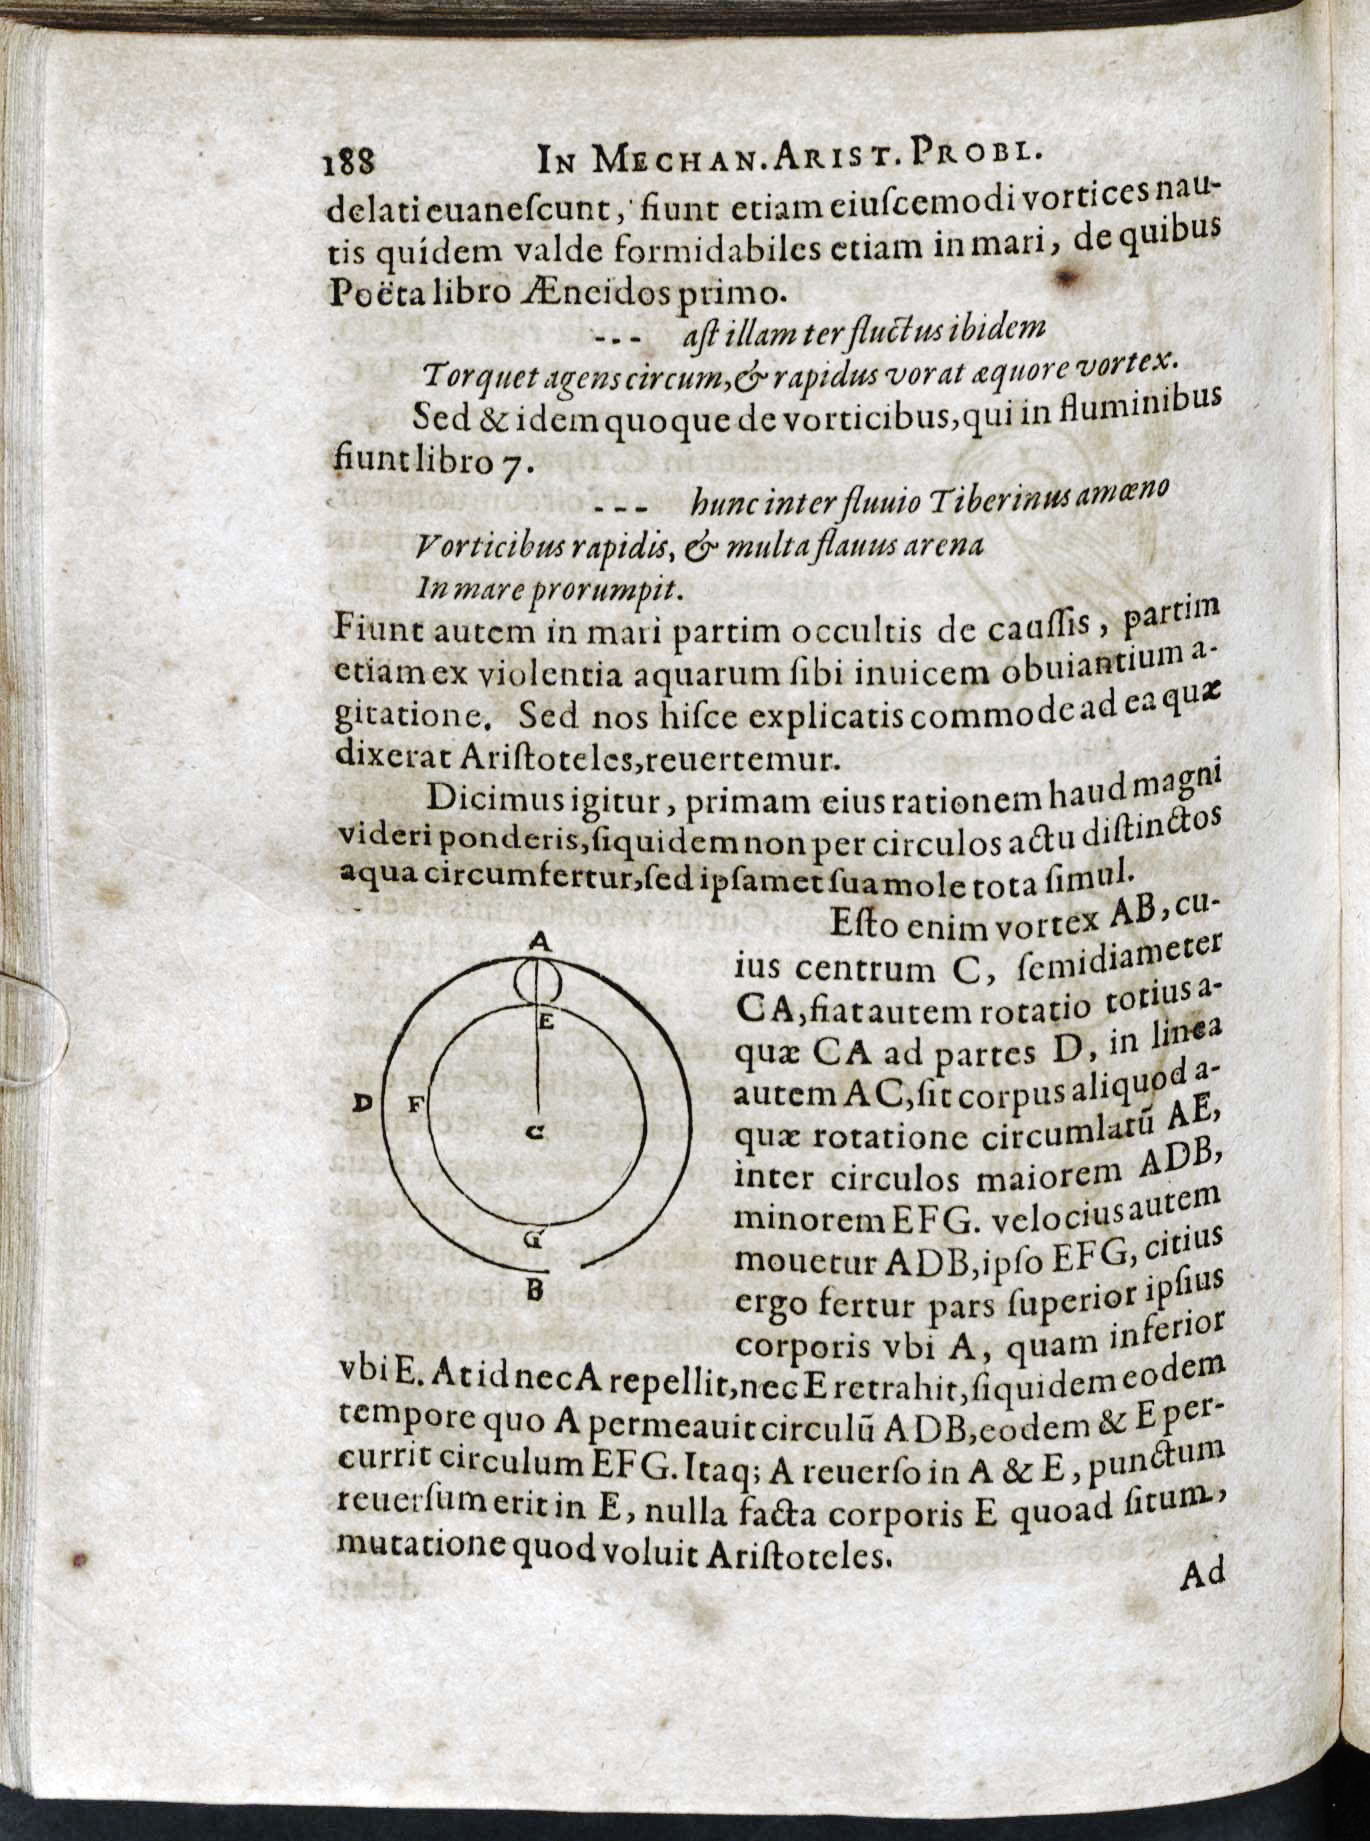 188 IN MECHAN. ARIST. PROBL.
delati euaneſcunt, fiunt etiam eiuſcemodi vortices nau-
tis quídem valde formidabiles etiam in mari, de quibus
Poëta libro Æneidos primo.
--- aſt illam ter fluctus ibidem
Torquet agens circum, & rapidus vorat æquore vortex.
Sed & idem quoque de vorticibus, qui in fluminibus
fiunt libro 7.
--- hunc inter fluuio Tiberinus amœno
Vorticibus rapidis, & multa flauus arena
In mare prorumpit.
Fiunt autem in mari partim occultis de cauſſis, partim
etiam ex violentia aquarum ſibi inuicem obuiantium a-
gitatione. Sed nos hiſce explicatis commode ad ea quæ
dixerat Ariſtoteles, reuertemur.
Dicimus igitur, primam eius rationem haud magni
videri ponderis, ſiquidem non per circulos actu diſtinctos
aqua circumfertur, ſed ipſamet ſua mole tota ſimul.
Eſto enim vortex AB, cu-
ius centrum C, ſemidiameter
CA, fiat autem rotatio totius a-
quæ CA ad partes D, in linea
autem AC, ſit corpus aliquod a-
quæ rotatione circumlatū AE,
inter circulos maiorem ADB,
minorem EFG. velocius autem
mouetur ADB, ipſo EFG, citius
ergo fertur pars ſuperior ipſius
corporis vbi A, quam inferior
A
E
D
F
C
G
B
vbi E. At id nec A repellit, nec E retrahit, ſiquidem eodem
tempore quo A permeauit circulū ADB, eodem & E per-
currit circulum EFG. Itaq; A reuerſo in A & E, punctum
reuerſum erit in E, nulla facta corporis E quoad ſitum,
mutatione quod voluit Ariſtoteles.
Ad